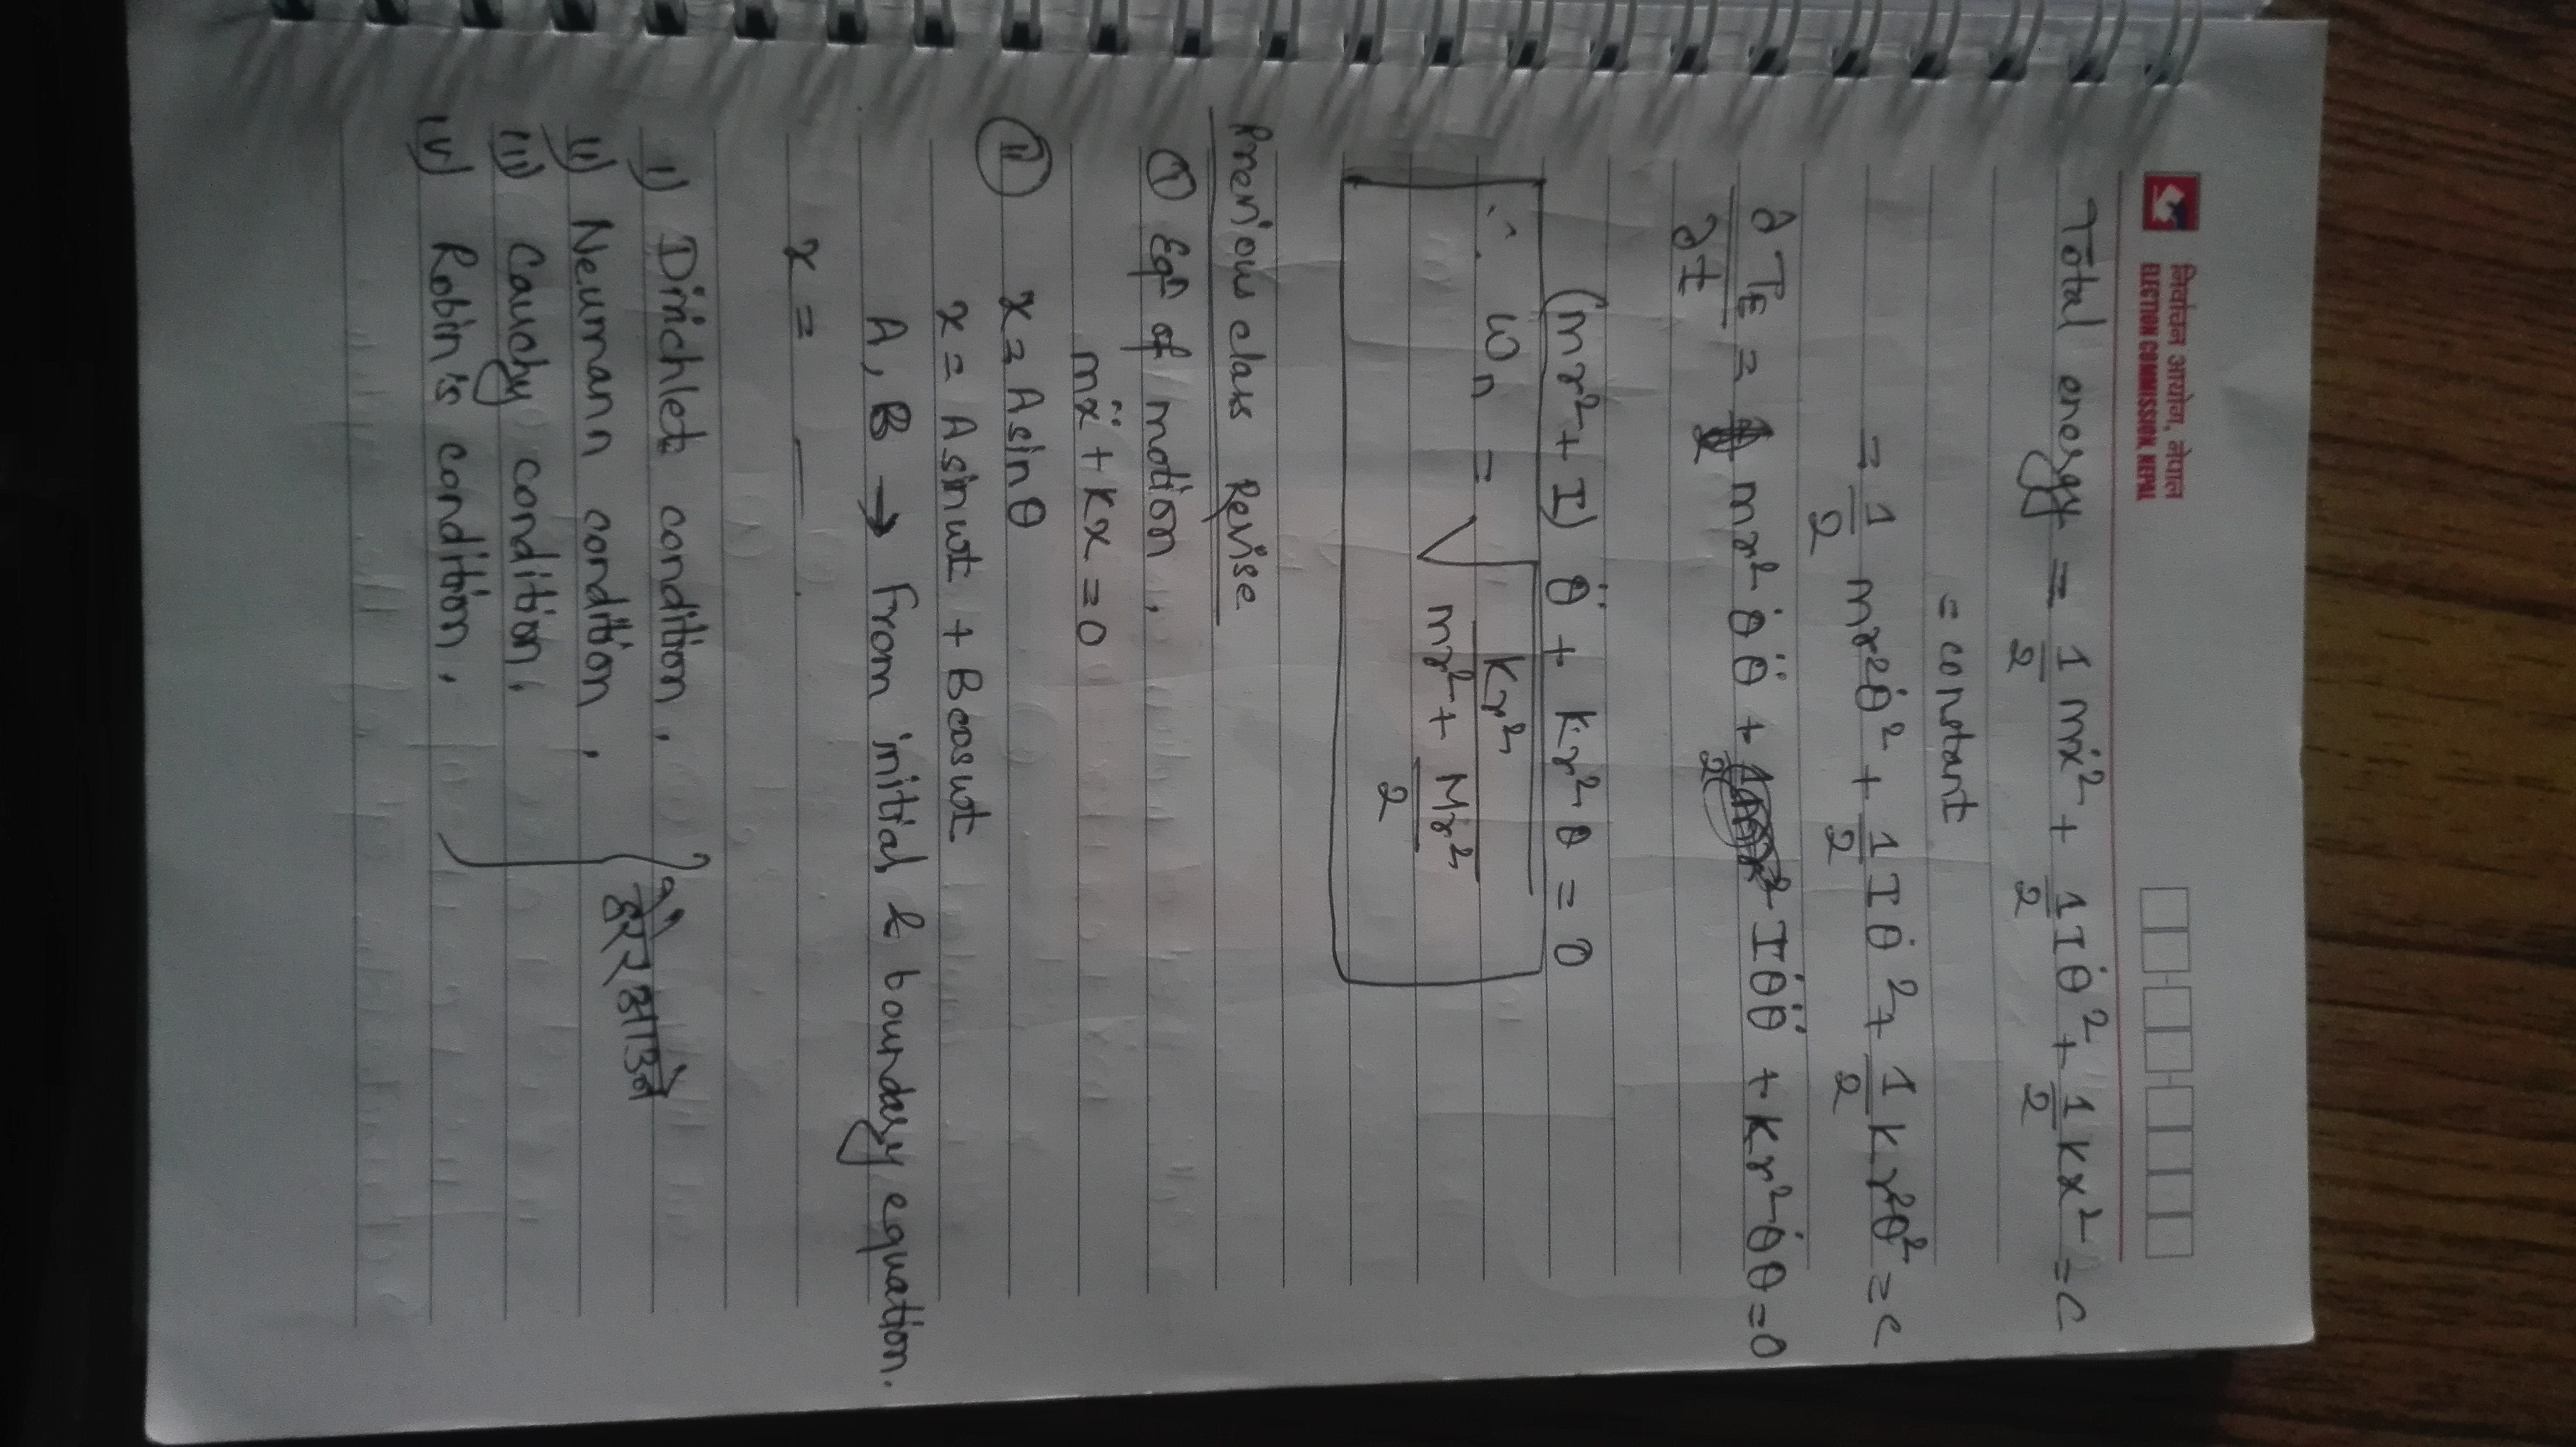 निर्वाचन आयोग, नेपाल
ELECTION COMMISSION, NEPAL
Total energy = 1/2 mẋ² + 1/2 Iθ̇² + 1/2 kx² = c
= constant
= 1/2 mr²θ̇² + 1/2 Iθ̇² + 1/2 kr²θ² = c
∂TE/∂t = mr² θ̇ θ̈ + Iθ̇θ̈ + kr² θ̇θ = 0
(mr² + I) θ̈ + kr² θ = 0
∴ ωn = √(kr² / (mr² + Mr²/2))
Previous class Revise
① Eqn of motion,
mẍ + kx = 0
② x = A sinθ
x = A sinωt + B cosωt
A, B → From initial & boundary equation.
x =
i) Dirichlet condition,
ii) Neumann condition,
iii) Cauchy condition,
iv) Robin's condition.
हेरेर आउने